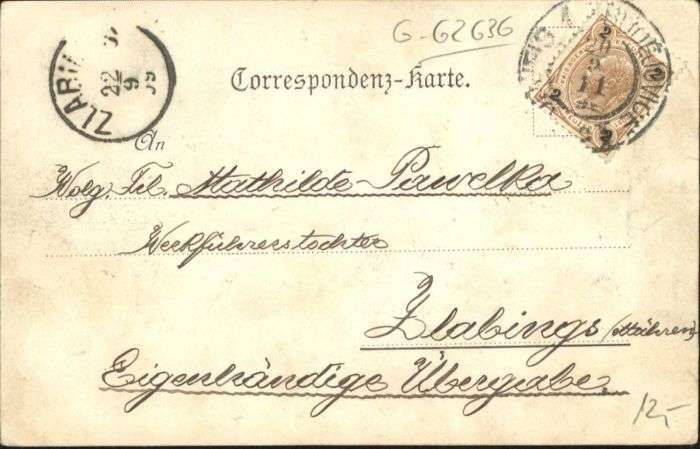 G-62636
ZLABI
22
9
99
Correspondenz-Karte.
An
Wolg. Frl. Mathilde Pawelka
Werkführerstochter
Zlabings (Mähren)
Eigenhändige Übergabe.
12,-
2 2
2 2